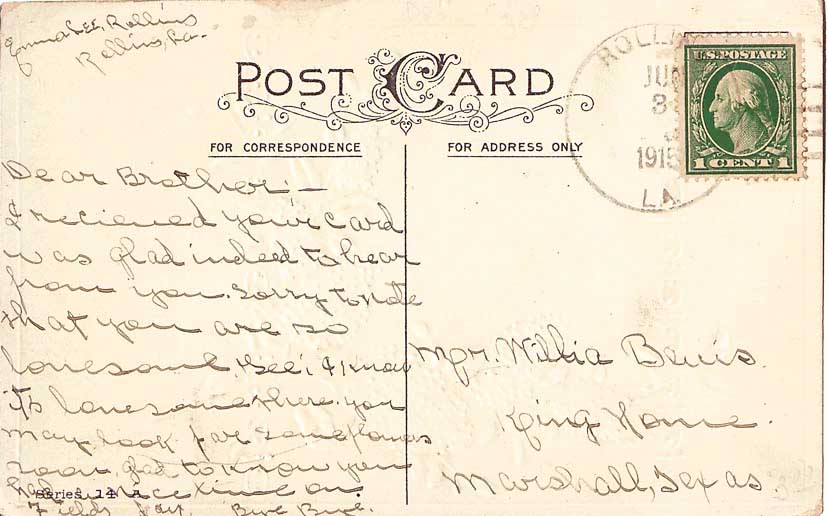 Emma Lee, Rollins
Rollins, La.
POST CARD
FOR CORRESPONDENCE
FOR ADDRESS ONLY
ROLLI
JUN
3
1915
LA.
U.S. POSTAGE
1 CENT 1
Dear Brother;—
I recieved your card
was glad indeed to hear
from you. Sorry to note
that you are so
lonesome, Gee, I know
it's lonesome there. you
may look for some flowers
soon, glad to know you
had a nice time on
day. Bye Bye.
Series 14
Mr. Willia
King Home
Marshall, Texas.